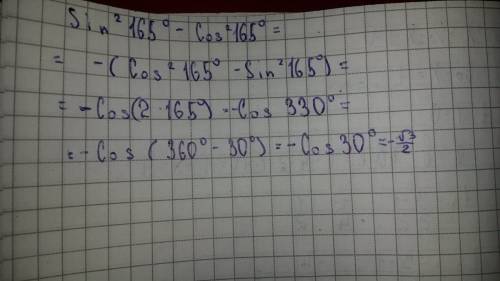 Sin²165° - Cos²165° =
= -(Cos²165° - Sin²165°) =
= -Cos(2·165°) = -Cos 330° =
= -Cos (360° - 30°) = -Cos 30° = -√3/2